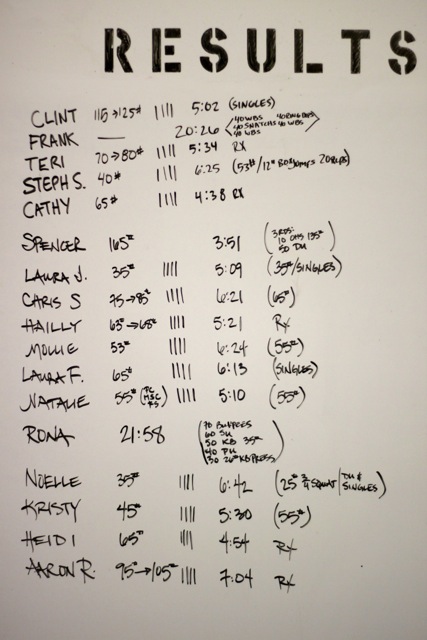 RESULTS
CLINT 115→125# |||| 5:02 (SINGLES)
FRANK — 20:26
TERI 70→80# |||| 5:34 RX
STEPH S. 40# |||| 6:25
CATHY 65# |||| 4:38 RX
SPENCER 165# 3:51 (3 RDS: 10 OHS 135# 50 DU)
LAURA J. 35# |||| 5:09 (35#/SINGLES)
CHRIS S 75→85# |||| 6:21 (65#)
HAILLY 63#→68# |||| 5:21 RX
MOLLIE 53# |||| 6:24 (55#)
LAURA F. 65# |||| 6:13 (SINGLES)
NATALIE 55# |||| 5:10 (55#)
RONA 21:58 (70 BURPEES
60 SU
50 KB 35#
40 PU
30 26# KB PRESS)
NOELLE 35# |||| 6:42 (25# 3/4 SQUAT / DU & SINGLES)
KRISTY 45# |||| 5:30 (55#)
HEIDI 65# |||| 4:54 RX
AARON R. 95#→105# |||| 7:04 RX